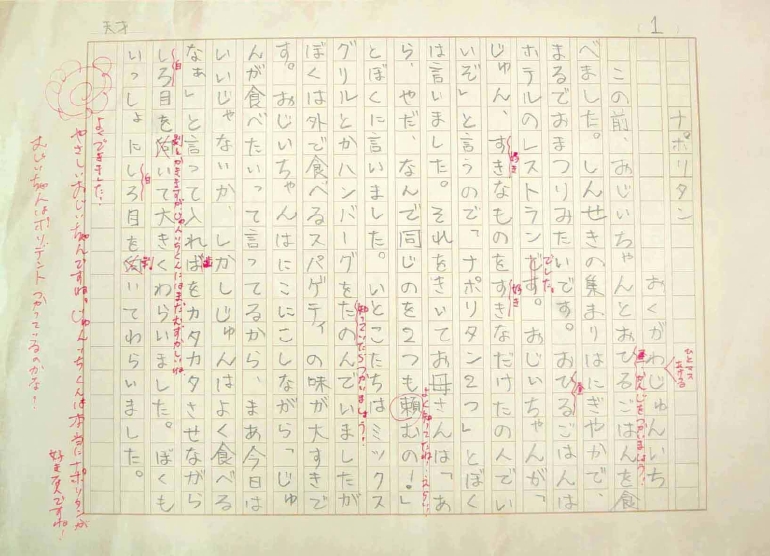 天才
1
ナポリタン
おくがわじゅんいち
この前、おじいちゃんとおひるごはんを食
べました。しんせきの集まりはにぎやかで、
まるでおまつりみたいです。おひるごはんは
ホテルのレストランです。おじいちゃんが「
じゅん、すきなものをすきなだけたのんでい
いぞ」と言うので「ナポリタン2つ」とぼく
は言いました。それをきいてお母さんは「あ
ら、やだ、なんで同じのを2つも頼むの!」
とぼくに言いました。いとこたちはミックス
グリルとかハンバーグをたのんでいましたが
ぼくは外で食べるスパゲティの味が大すきで
す。おじいちゃんはにこにこしながら「じゅ
んが食べたいって言ってるから、まあ今日は
いいじゃないか、しかしじゅんはよく食べる
なぁ」と言って入ればをカタカタさせながら
しろ目を剝いて大きくわらいました。ぼくも
いっしょにしろ目を剝いてわらいました。
ひとマスあける
昼
かんじをつかいましょう!
昼
でした。
好き
好き
よく知ってたね!えらい!
知っていたらつかいましょう!
歯
白
白
剝
よくできました。
やさしいおじいちゃんですね。じゅんいちくんは本当にナポリタンが
好きなんですね!
おじいちゃんはポリデントつかっているのかな?